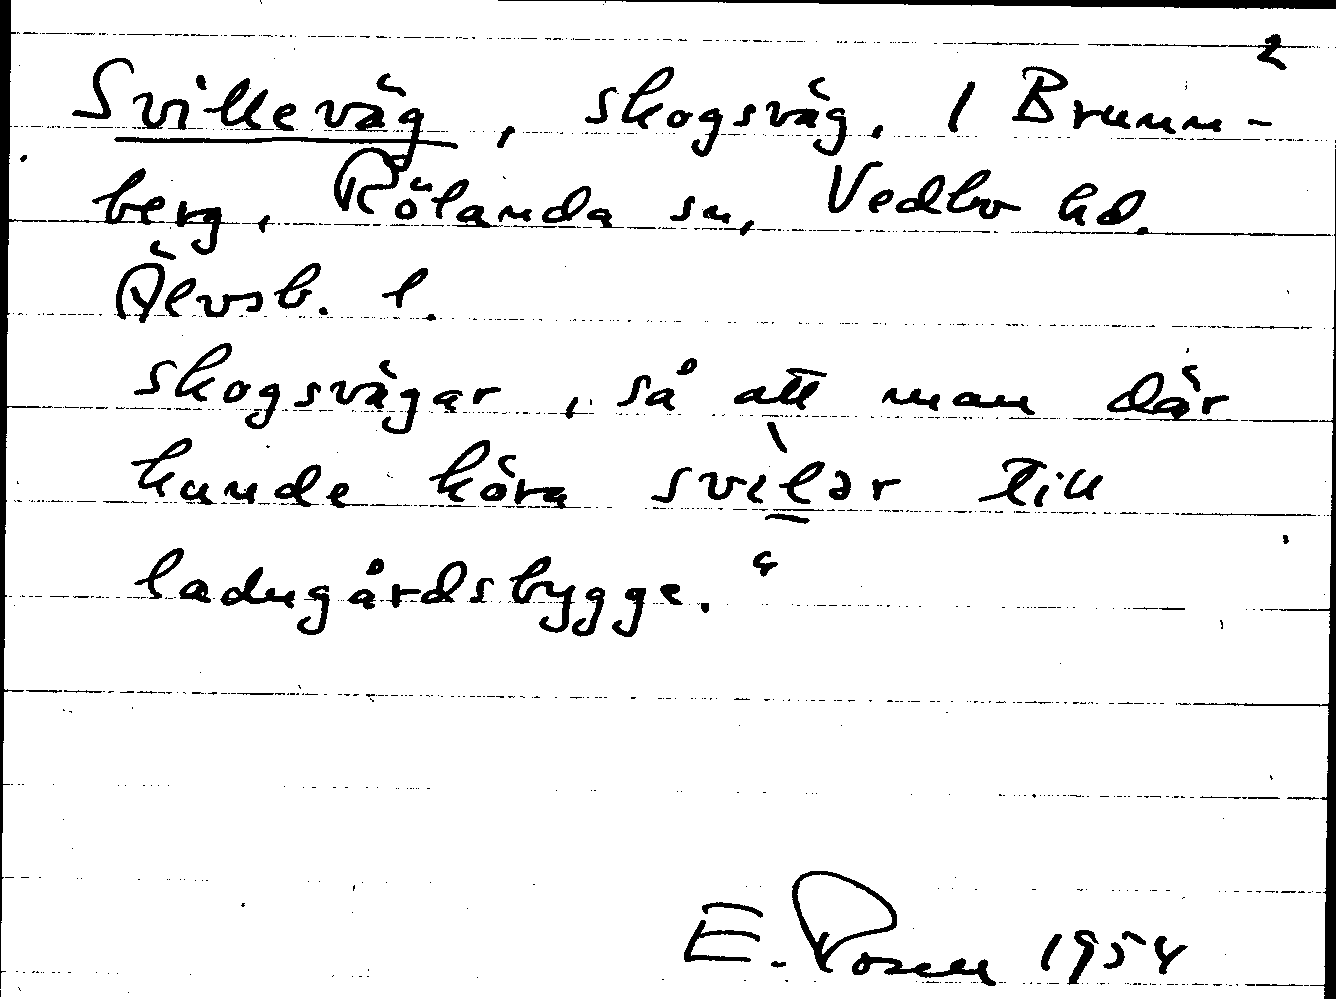 2
Svilleväg, skogsväg. I Brunn-
berg, Rölanda sn, Vedbo hd.
Älvsb. l.
skogsvägar, så att man där
kunde köra svìlər till
ladugårdsbygge."
E. Rosen 1954